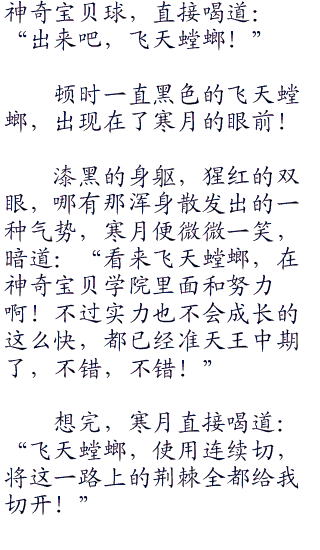 神奇宝贝球，直接喝道：
“出来吧，飞天螳螂！”
顿时一直黑色的飞天螳
螂，出现在了寒月的眼前！
漆黑的身躯，猩红的双
眼，哪有那浑身散发出的一
种气势，寒月便微微一笑，
暗道：“看来飞天螳螂，在
神奇宝贝学院里面和努力
啊！不过实力也不会成长的
这么快，都已经准天王中期
了，不错，不错！”
想完，寒月直接喝道：
“飞天螳螂，使用连续切，
将这一路上的荆棘全都给我
切开！”